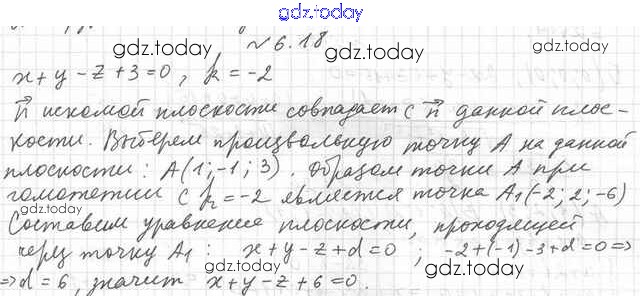 gdz.today
№ 6.18
gdz.today gdz.today
x+y-z+3=0, k=-2
n⃗ искомой плоскости совпадает с n⃗ данной плос-
кости. Выберем произвольную точку А на данной
плоскости: А(1;-1;3). Образом точки А при
гомотетии с k=-2 является точка А₁(-2; 2; -6)
gdz.today gdz.today
Составим уравнение плоскости, проходящей
через точку А₁: x+y-z+d=0; -2+(-1)-3+d=0=>
=>d=6, значит x+y-z+6=0.
gdz.today gdz.today